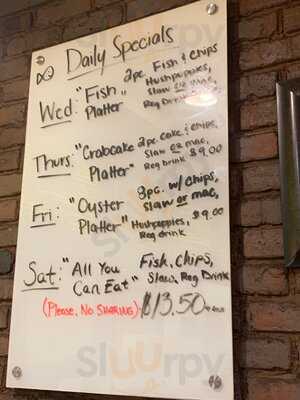 Daily Specials
Wed: "Fish Platter" 2pc Fish & Chips
Hushpuppies,
Slaw or mac,
Reg Drink
Thurs: "Crabcake Platter" 2pc cake & chips,
Slaw or mac,
Reg drink $9.00
Fri: "Oyster Platter" 8pc. w/ chips,
Slaw or mac,
Hushpuppies, $9.00
Reg drink
Sat: "All You Can Eat" Fish, Chips,
Slaw, Reg Drink
(Please, No SHARING) $13.50
Sluurpy